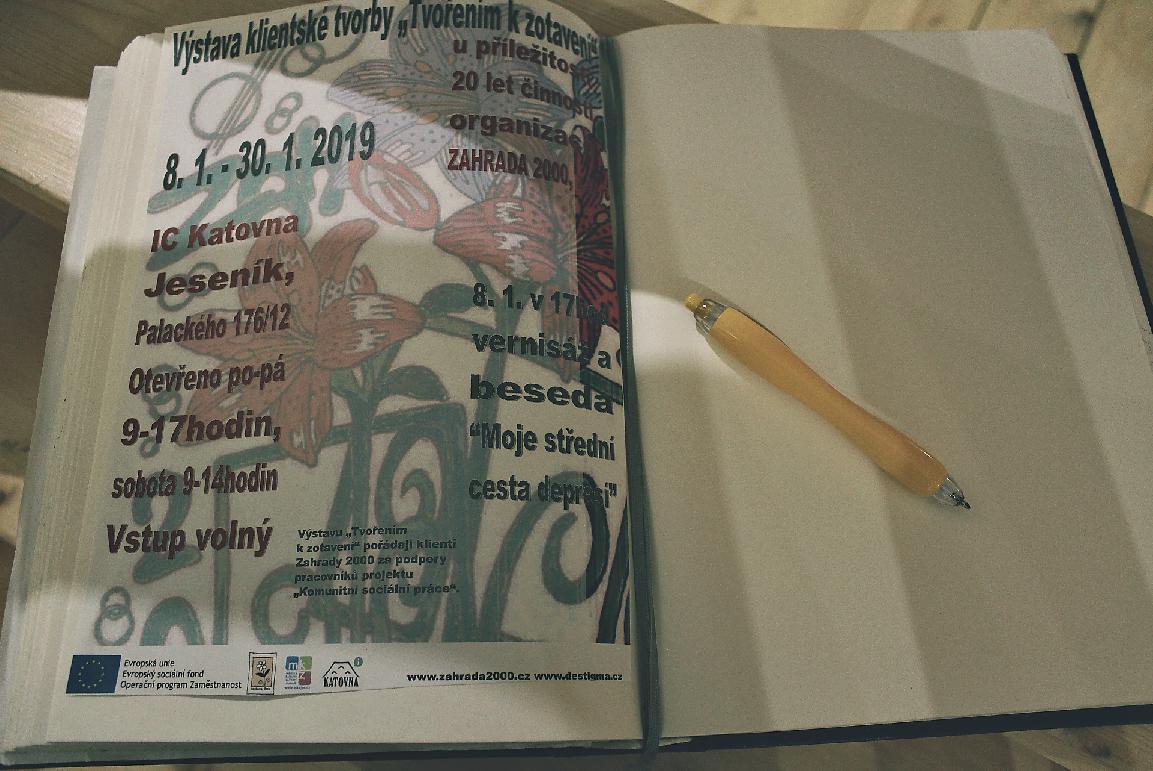 Výstava klientské tvorby „Tvořením k zotavení“
u příležitosti
20 let činnosti
organizace
ZAHRADA 2000,
8. 1. - 30. 1. 2019
IC Katovna
Jeseník,
Palackého 176/12
Otevřeno po-pá
9-17hodin,
sobota 9-14hodin
Vstup volný
8. 1. v 17hod
vernisáž a
beseda
“Moje střední
cesta depresí”
Výstavu „Tvořením
k zotavení“ pořádají klienti
Zahrady 2000 za podpory
pracovníků projektu
„Komunitní sociální práce“.
Evropská unie
Evropský sociální fond
Operační program Zaměstnanost
KATOVNA
www.zahrada2000.cz www.destigma.cz